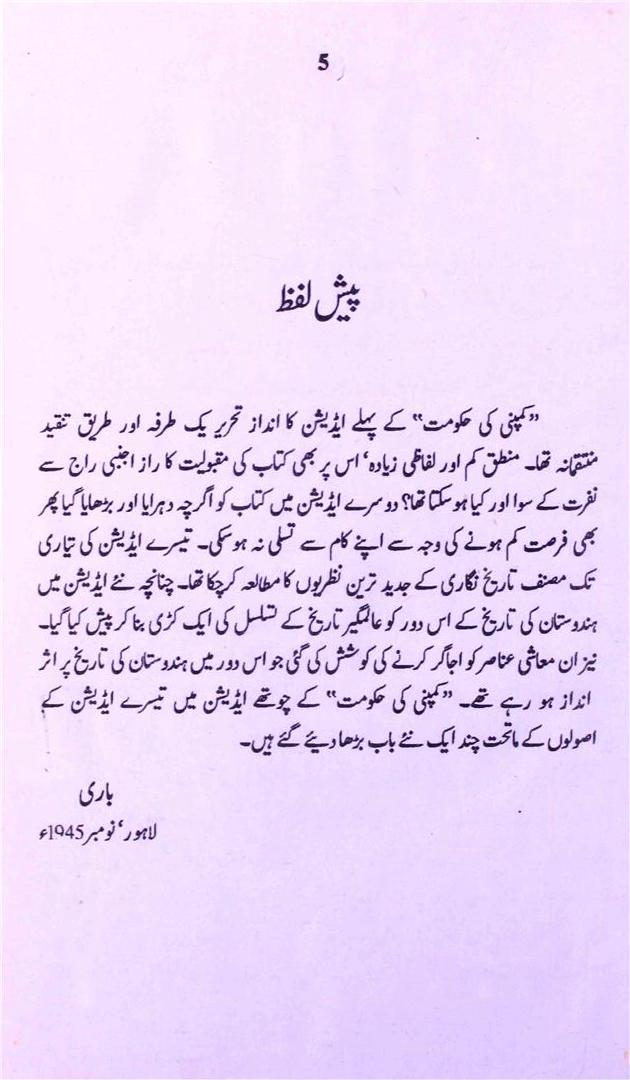 5
پیش لفظ
”کمپنی کی حکومت“ کے پہلے ایڈیشن کا انداز تحریر یک طرفہ اور طریق تنقید
منتقمانہ تھا۔ منطق کم اور لفاظی زیادہ‘ اس پر بھی کتاب کی مقبولیت کا راز اجنبی راج سے
نفرت کے سوا اور کیا ہو سکتا تھا؟ دوسرے ایڈیشن میں کتاب کو اگرچہ دہرایا اور بڑھایا گیا پھر
بھی فرصت کم ہونے کی وجہ سے اپنے کام سے تسلی نہ ہو سکی۔ تیسرے ایڈیشن کی تیاری
تک مصنف تاریخ نگاری کے جدید ترین نظریوں کا مطالعہ کر چکا تھا۔ چنانچہ نئے ایڈیشن میں
ہندوستان کی تاریخ کے اس دور کو عالمگیر تاریخ کے تسلسل کی ایک کڑی بنا کر پیش کیا گیا۔
نیز ان معاشی عناصر کو اجاگر کرنے کی کوشش کی گئی جو اس دور میں ہندوستان کی تاریخ پر اثر
انداز ہو رہے تھے۔ ”کمپنی کی حکومت“ کے چوتھے ایڈیشن میں تیسرے ایڈیشن کے
اصولوں کے ماتحت چند ایک نئے باب بڑھا دیئے گئے ہیں۔
باری
لاہور‘ نومبر 1945ء